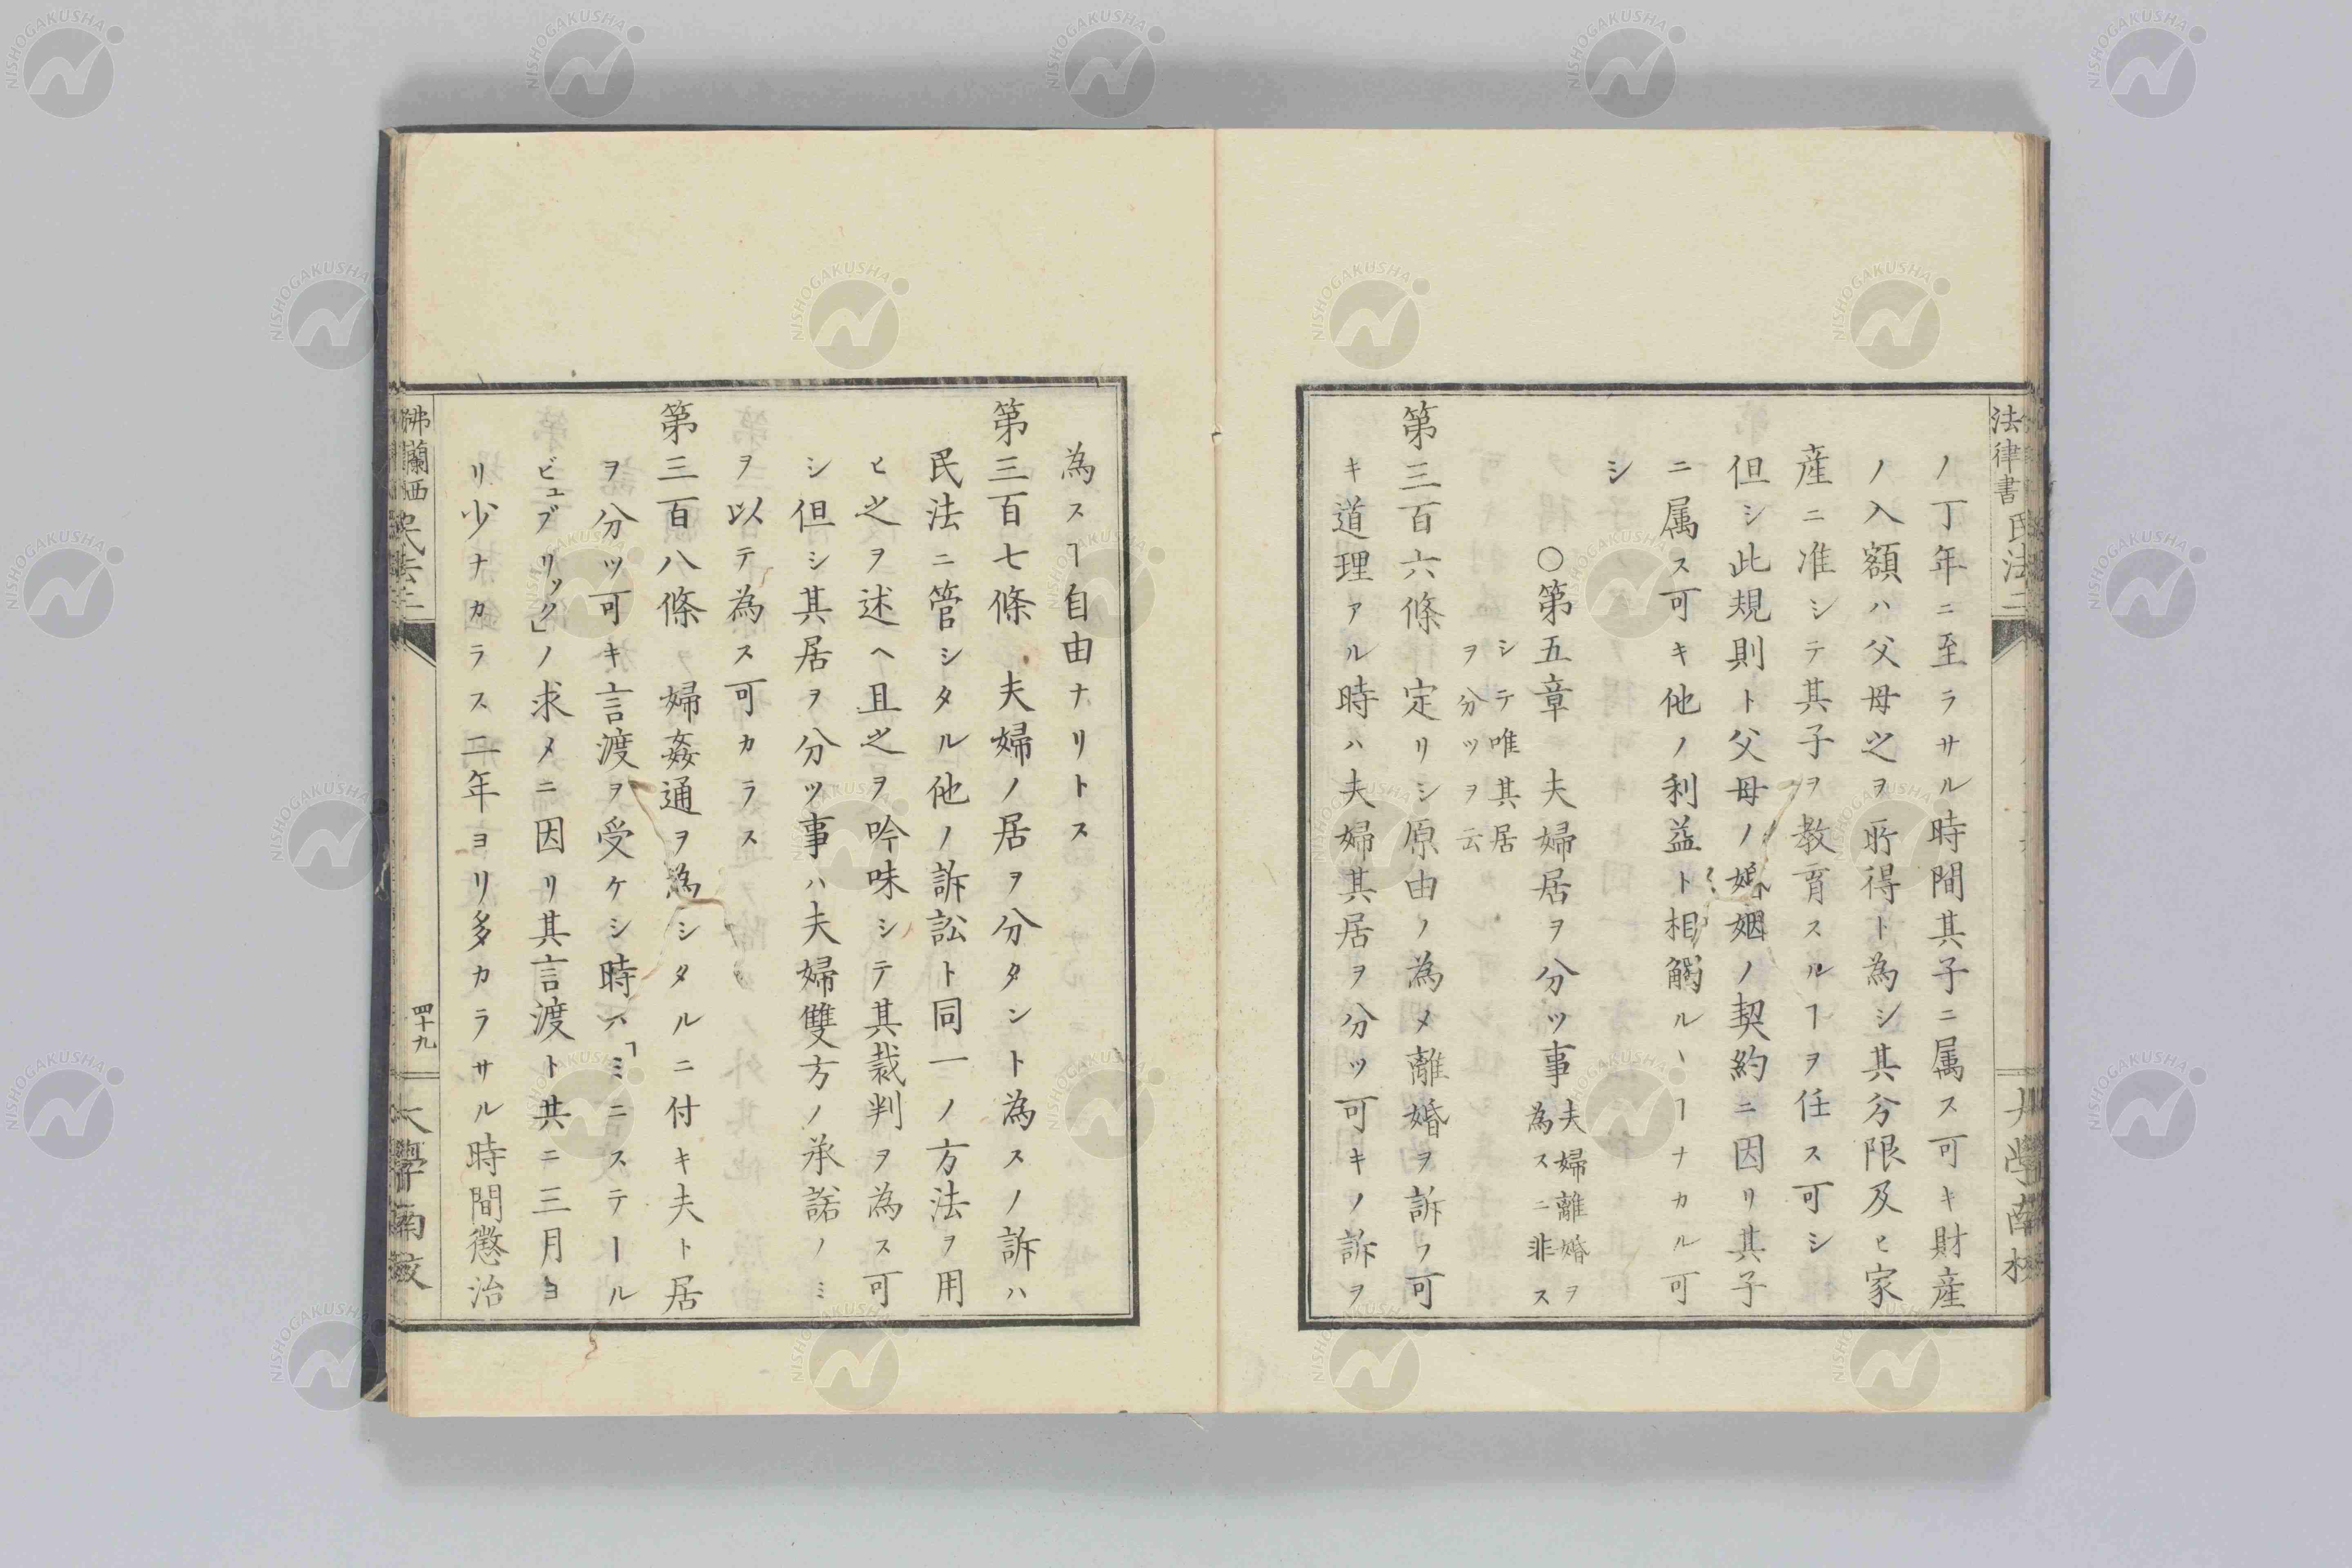 法律書 民法二
ノ丁年ニ至ラサル時間其子ニ属ス可キ財産
ノ入額ハ父母之ヲ所得ト為シ其分限及ヒ家
産ニ准シテ其子ヲ教育スルヿヲ任ス可シ
但シ此規則ト父母ノ婚姻ノ契約ニ因リ其子
ニ属ス可キ他ノ利益ト相觸ルヽヿナカル可
シ
○第五章 夫婦居ヲ分ツ事 夫婦離婚ヲ
為スニ非ス
シテ唯其居
ヲ分ツヲ云
第三百六條 定リシ原由ノ為メ離婚ヲ訴フ可
キ道理アル時ハ夫婦其居ヲ分ツ可キノ訴ヲ
為スヿ自由ナリトス
第三百七條 夫婦ノ居ヲ分タント為スノ訴ハ
民法ニ管シタル他ノ訴訟ト同一ノ方法ヲ用
ヒ之ヲ述ヘ且之ヲ吟味シテ其裁判ヲ為ス可
シ但シ其居ヲ分ツ事ハ夫婦雙方ノ承諾ノミ
ヲ以テ為ス可カラス
第三百八條 婦姦通ヲ為シタルニ付キ夫ト居
ヲ分ツ可キ言渡ヲ受ケシ時ハ「ミニステール
ビュブリック」ノ求メニ因リ其言渡ト共ニ三月ヨ
リ少ナカラス二年ヨリ多カラサル時間懲治
佛蘭西 民法二
四十九
大學南校
NISHOGAKUSHA